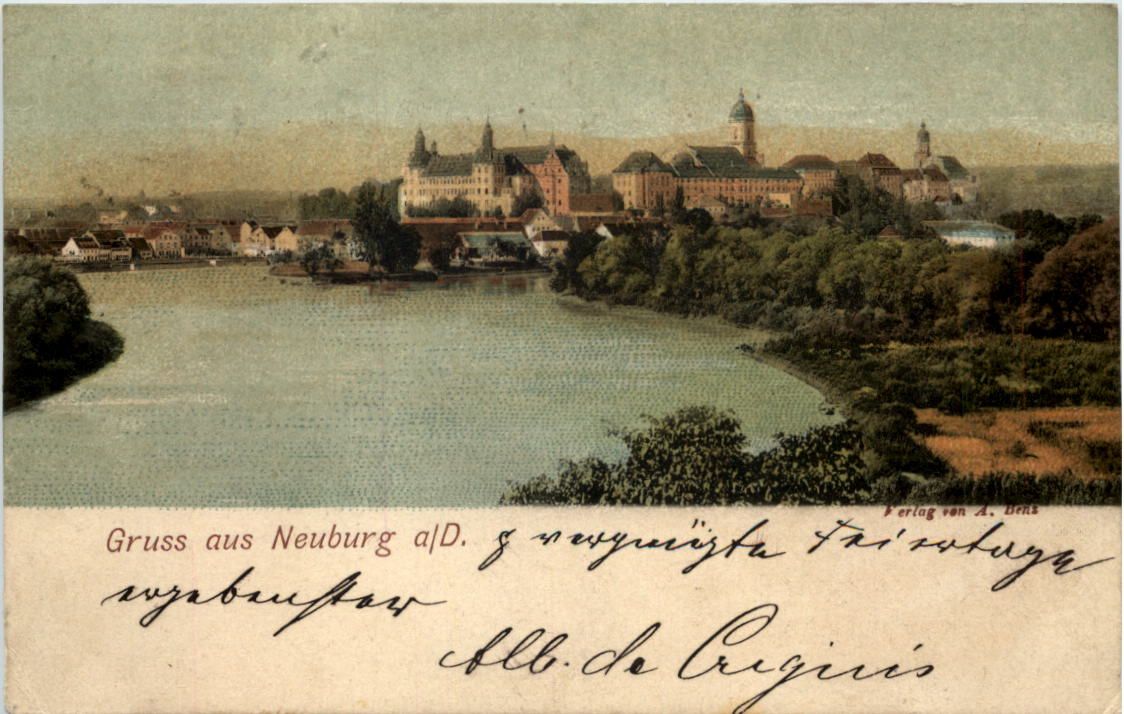 Verlag von A. Benz
Gruss aus Neuburg a/D. vergnügte Feiertage
ergebenster
Alb. de Crignis